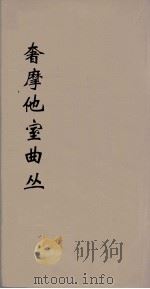 奢摩他室曲丛
读网
mtoou.info